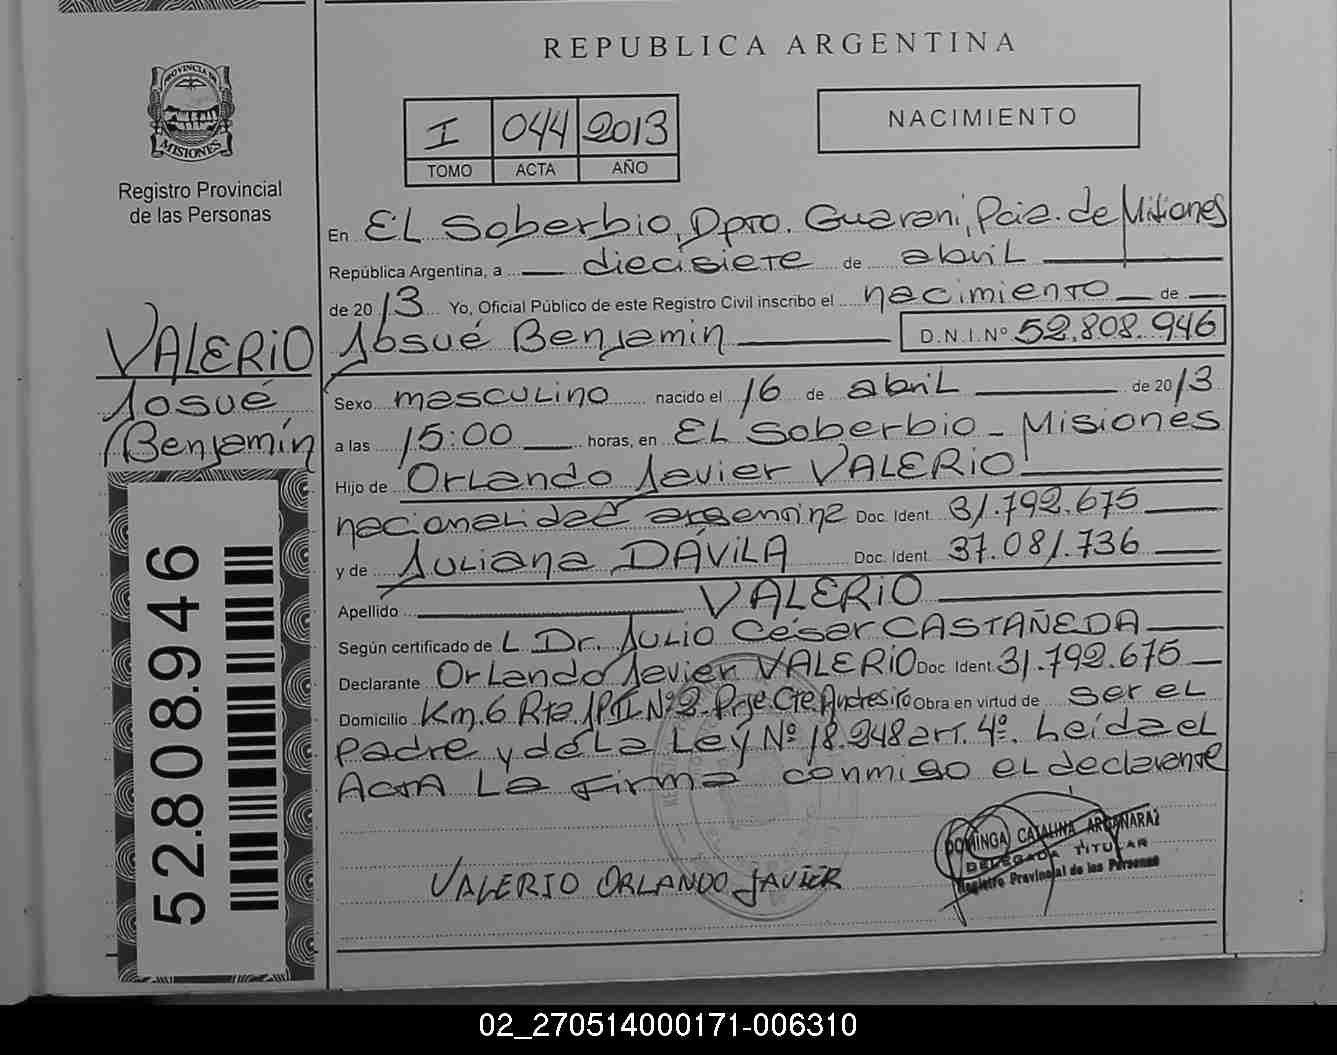 REPUBLICA ARGENTINA
PROVINCIA DE
MISIONES
Registro Provincial
de las Personas
I 044 2013
TOMO ACTA AÑO
NACIMIENTO
En EL Soberbio, Dpto. Guarani, Pcia. de Misiones
República Argentina, a diecisiete de abril
de 2013 Yo, Oficial Público de este Registro Civil inscribo el nacimiento de
Josué Benjamin D.N.I.Nº 52.808.946
Sexo masculino nacido el 16 de abril de 2013
a las 15:00 horas, en EL Soberbio - Misiones
Hijo de Orlando Javier VALERIO
nacionalidad argentina Doc. Ident. 31.792.675
y de Juliana DÁVILA Doc. Ident. 37.081.736
Apellido VALERIO
Según certificado de L Dr. Julio César CASTAÑEDA
Declarante Orlando Javier VALERIO Doc. Ident. 31.792.675
Domicilio Km. 6 Rta. Nº 2. Prje. Cte. Andresito Obra en virtud de ser el
Padre y de la Ley Nº 18.248 art. 4º. Leída el
Acta La firma conmigo el declarante
VALERIO ORLANDO JAVIER
DOMINGA CATALINA ARGAÑARAZ
DELEGADA TITULAR
Registro Provincial de las Personas
VALERIO
Josué
Benjamín
52.808.946
02_270514000171-006310